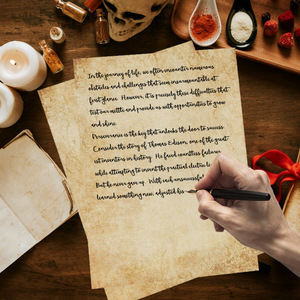 In the journey of life, we often encounter numerous
obstacles and challenges that seem insurmountable at
first glance. However, it is precisely these difficulties that
test our mettle and provide us with opportunities to grow
and shine.
Perseverance is the key that unlocks the door to success.
Consider the story of Thomas Edison, one of the great
est inventors in history. He faced countless failures
while attempting to invent the practical electric
But he never gave up. With each unsuccessful
learned something new, adjusted his